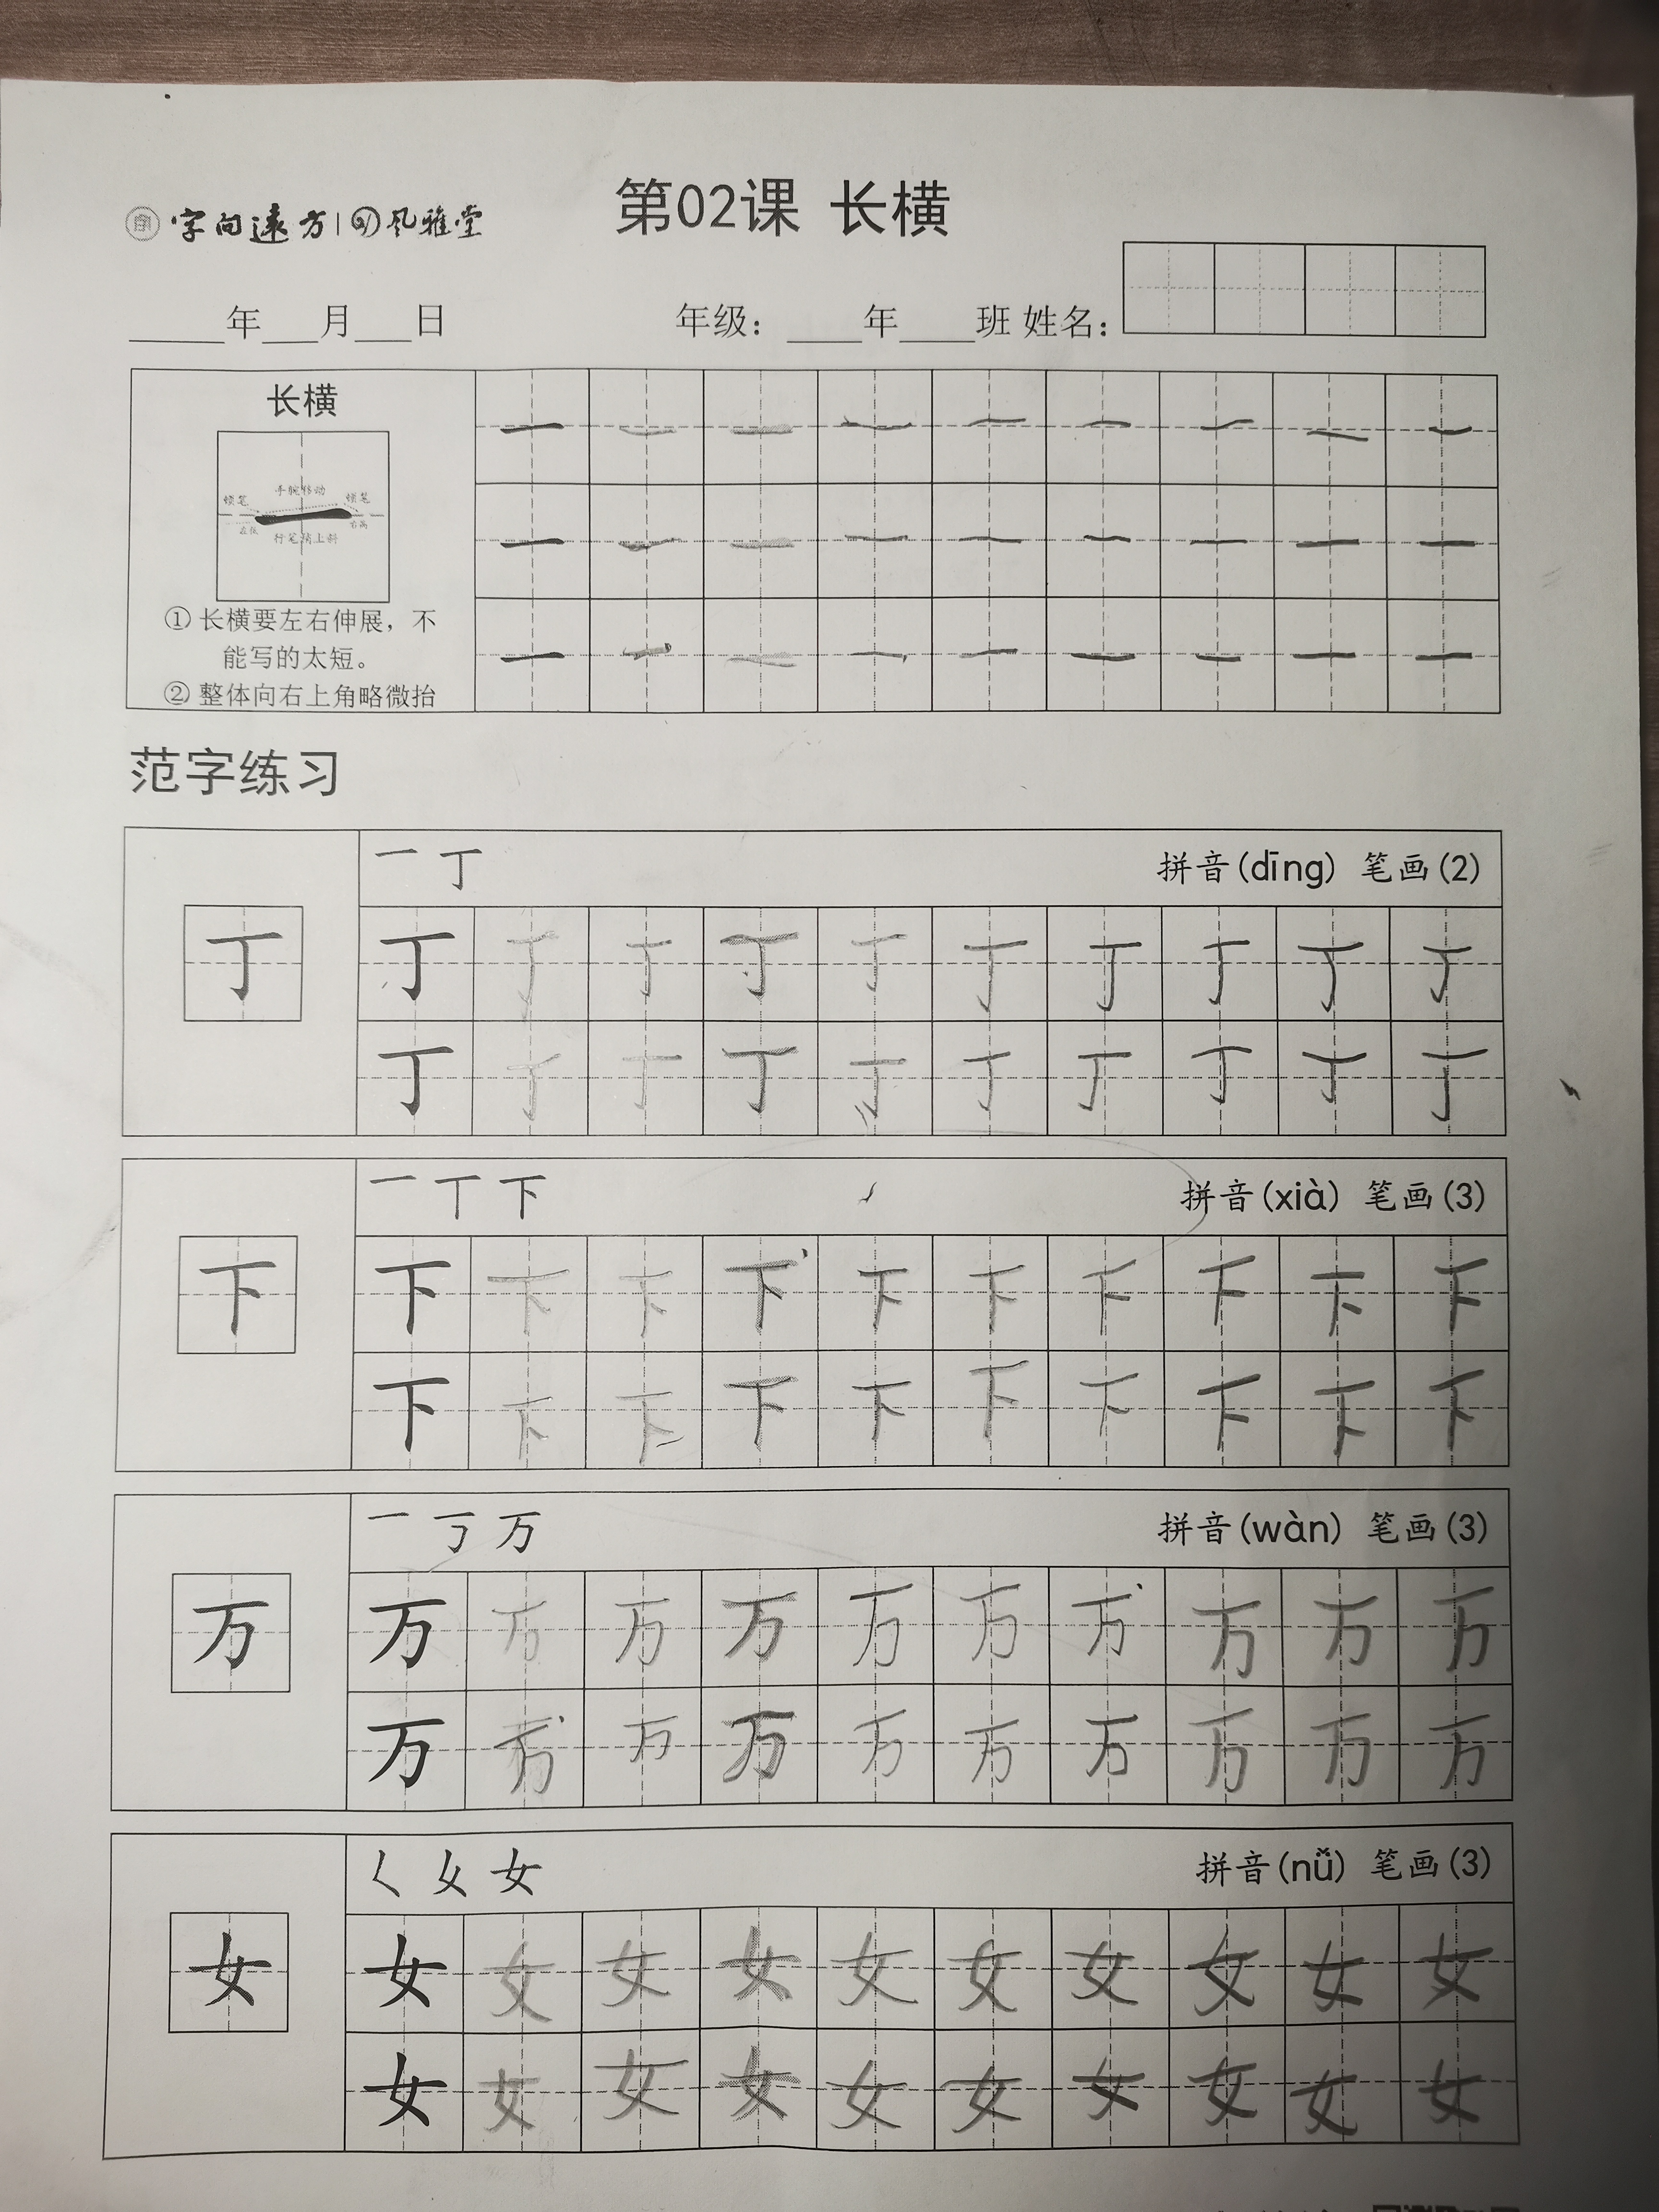 字向远方 | 风雅堂
第02课 长横
____年___月___日 年级：____年____班 姓名：
长横
顿笔 手腕移动 顿笔
左低 行笔稍上斜 右高
① 长横要左右伸展，不
能写的太短。
② 整体向右上角略微抬
一 一 一 一 一 一 一 一 一
一 一 一 一 一 一 一 一 一
一 一 一 一 一 一 一 一 一
范字练习
一 丁 拼音(dīng) 笔画(2)
丁
丁 丁 丁 丁 丁 丁 丁 丁 丁 丁
丁 丁 丁 丁 丁 丁 丁 丁 丁 丁
一 丅 下 拼音(xià) 笔画(3)
下
下 下 下 下 下 下 下 下 下 下
下 下 下 下 下 下 下 下 下 下
一 丂 万 拼音(wàn) 笔画(3)
万
万 万 万 万 万 万 万 万 万 万
万 万 万 万 万 万 万 万 万 万
𡿨 女 女 拼音(nǚ) 笔画(3)
女
女 女 女 女 女 女 女 女 女 女
女 女 女 女 女 女 女 女 女 女